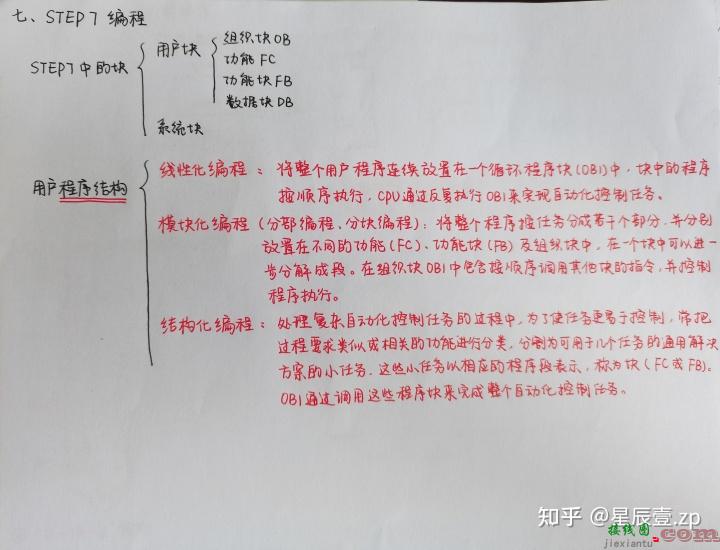 七、STEP7 编程
STEP7中的块
用户块
组织块OB
功能FC
功能块FB
数据块DB
系统块
用户程序结构
线性化编程：将整个用户程序连续放置在一个循环程序块(OB1)中，块中的程序
按顺序执行，CPU通过反复执行OB1来实现自动化控制任务。
模块化编程(分部编程、分块编程)：将整个程序按任务分成若干个部分，并分别
放置在不同的功能(FC)、功能块(FB)及组织块中，在一个块中可以进一
步分解成段。在组织块OB1中包含按顺序调用其他块的指令，并控制
程序执行。
结构化编程：处理复杂自动化控制任务的过程中，为了使任务更易于控制，常把
过程要求类似或相关的功能进行分类，分割为可用于几个任务的通用解决
方案的小任务，这些小任务以相应的程序段表示，称为块(FC或FB)。
OB1通过调用这些程序块来完成整个自动化控制任务。
知乎 @星辰壹.zp
接线图
jiexiantu
.com